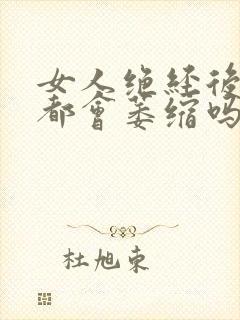 女人绝经後
都會萎缩吗
杜旭东